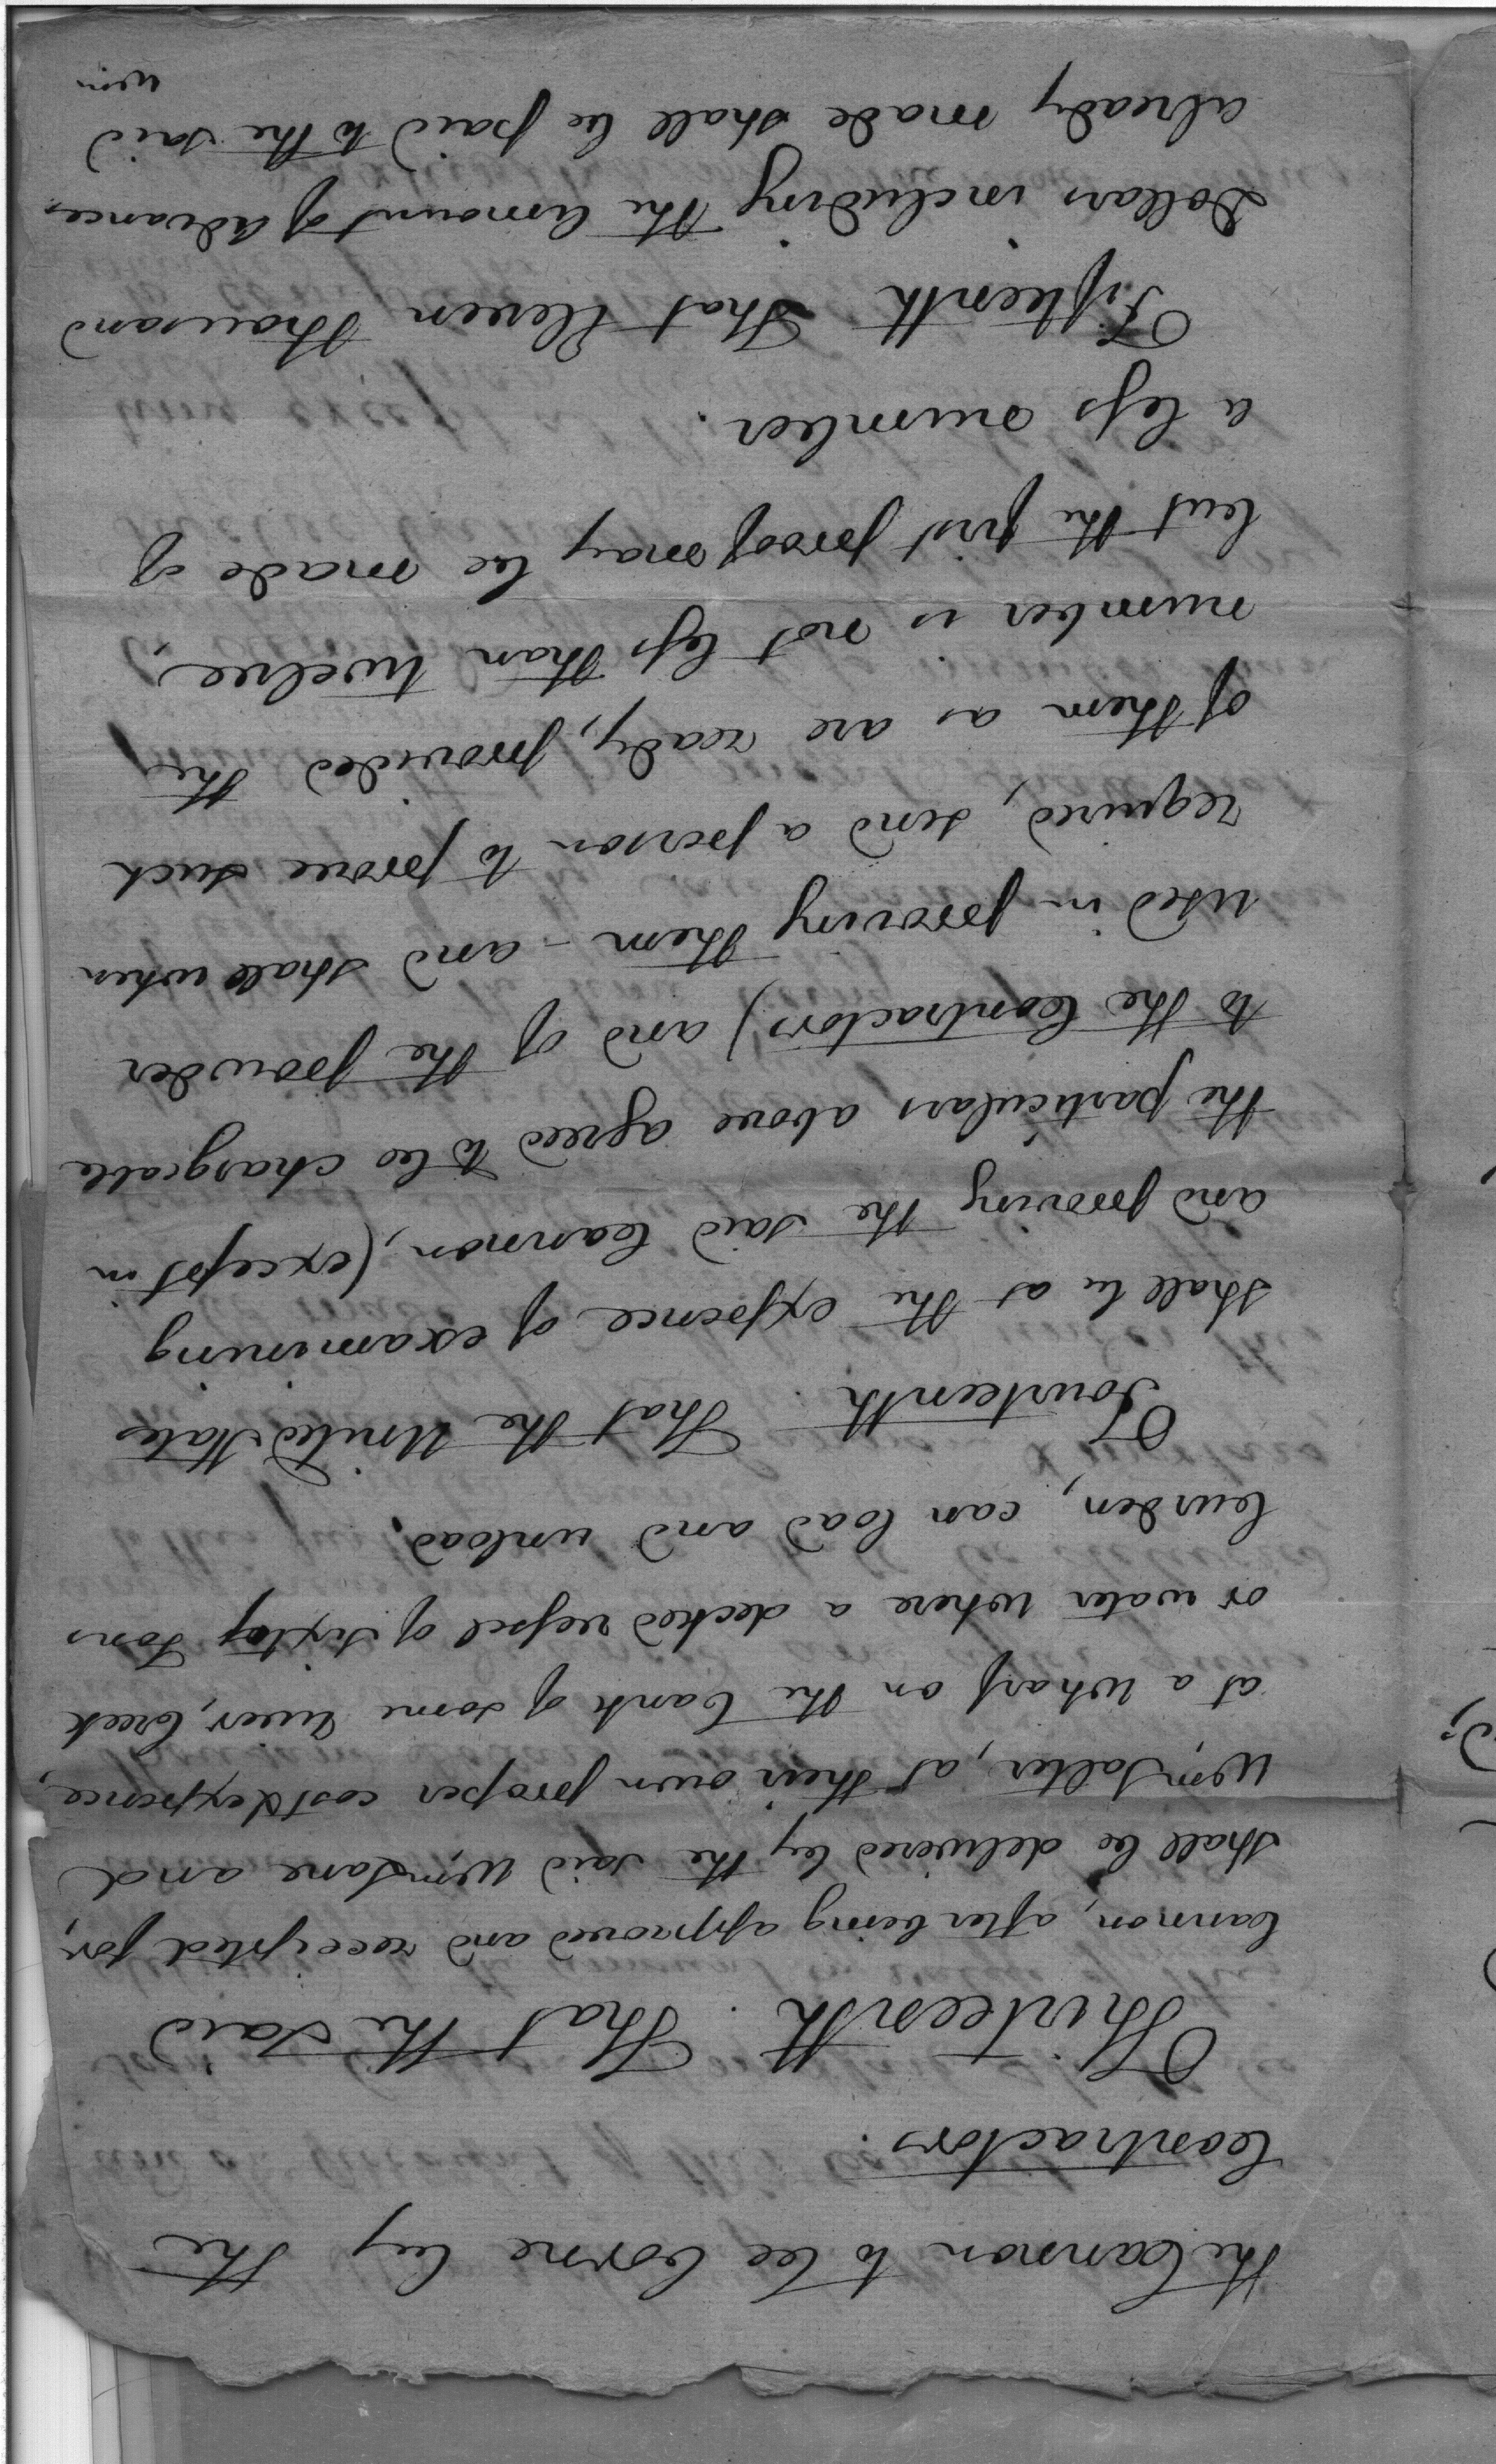 the Cannon to be borne by the
Contractors.
Thirteenth. That the said
Cannon, after being approved and receipted for,
shall be delivered by the said Wm Lane and
Wm Salter, at their own proper cost & expence,
at a wharf on the bank of some River, Creek
or water where a decked vessel of sixty Tons
burden, can load and unload.
Fourteenth. That the United States
shall be at the expence of examining
and proving the said Cannon, (except in
the particulars above agreed to be chargeable
to the Contractors) and of the powder
used in proving them - and shall when
required, send a person to prove such
of them as are ready, provided the
number is not less than twelve,
but the first proof may be made of
a less number.
Fifteenth That Eleven Thousand
Dollars including the amount of advances
already made shall be paid to the said
Wm